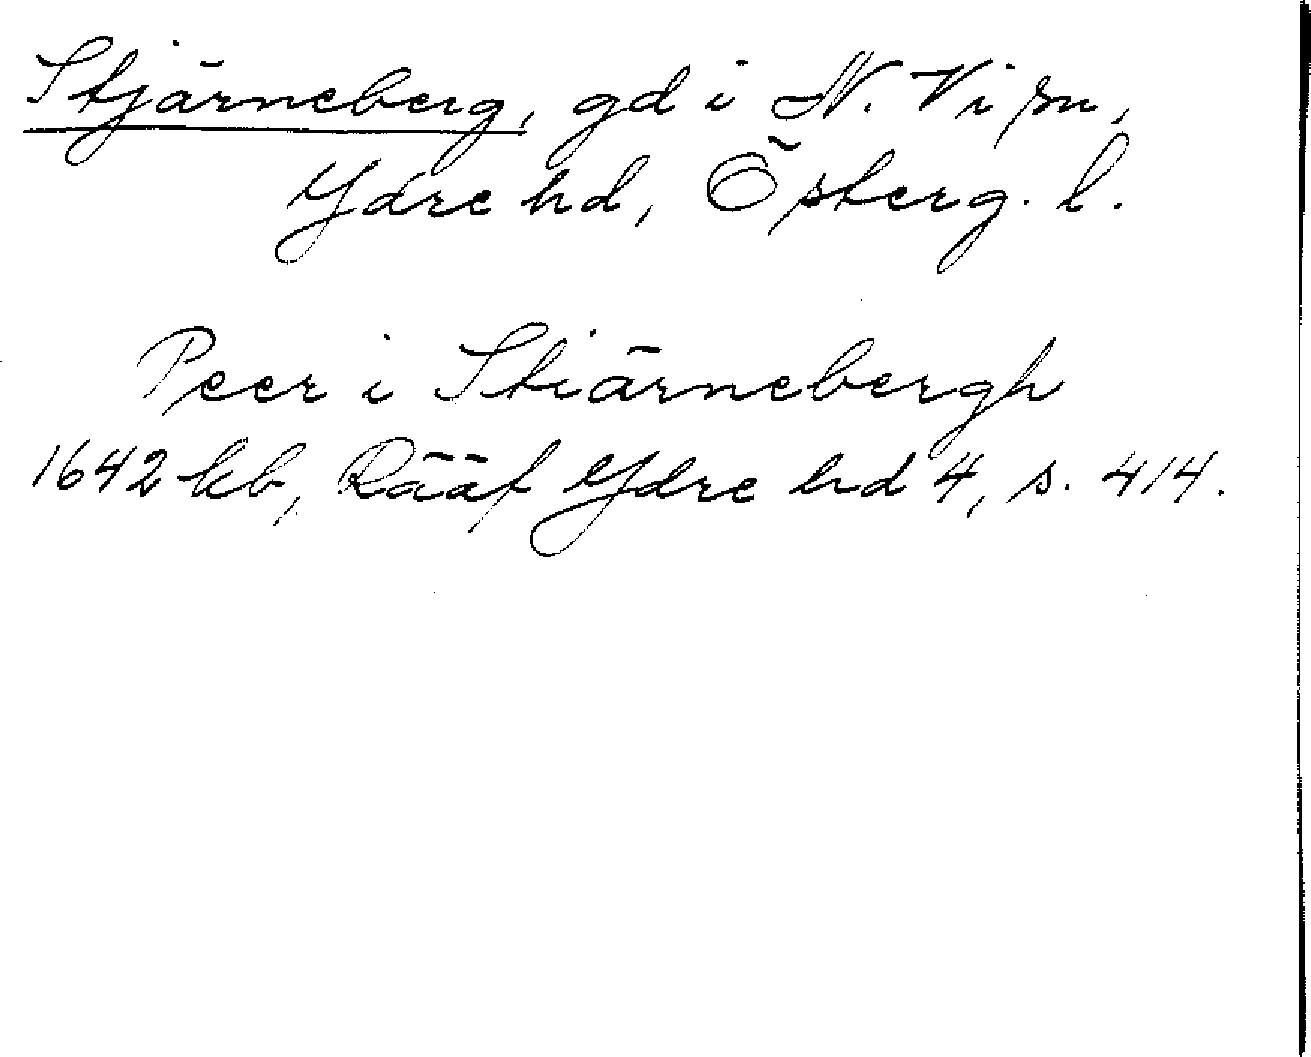 Stjärneberg, gd i N. Vi sn,
Ydre hd, Österg. l.
Peer i Stiärnebergh
1642 kb, Rääf Ydre hd 4, s. 414.